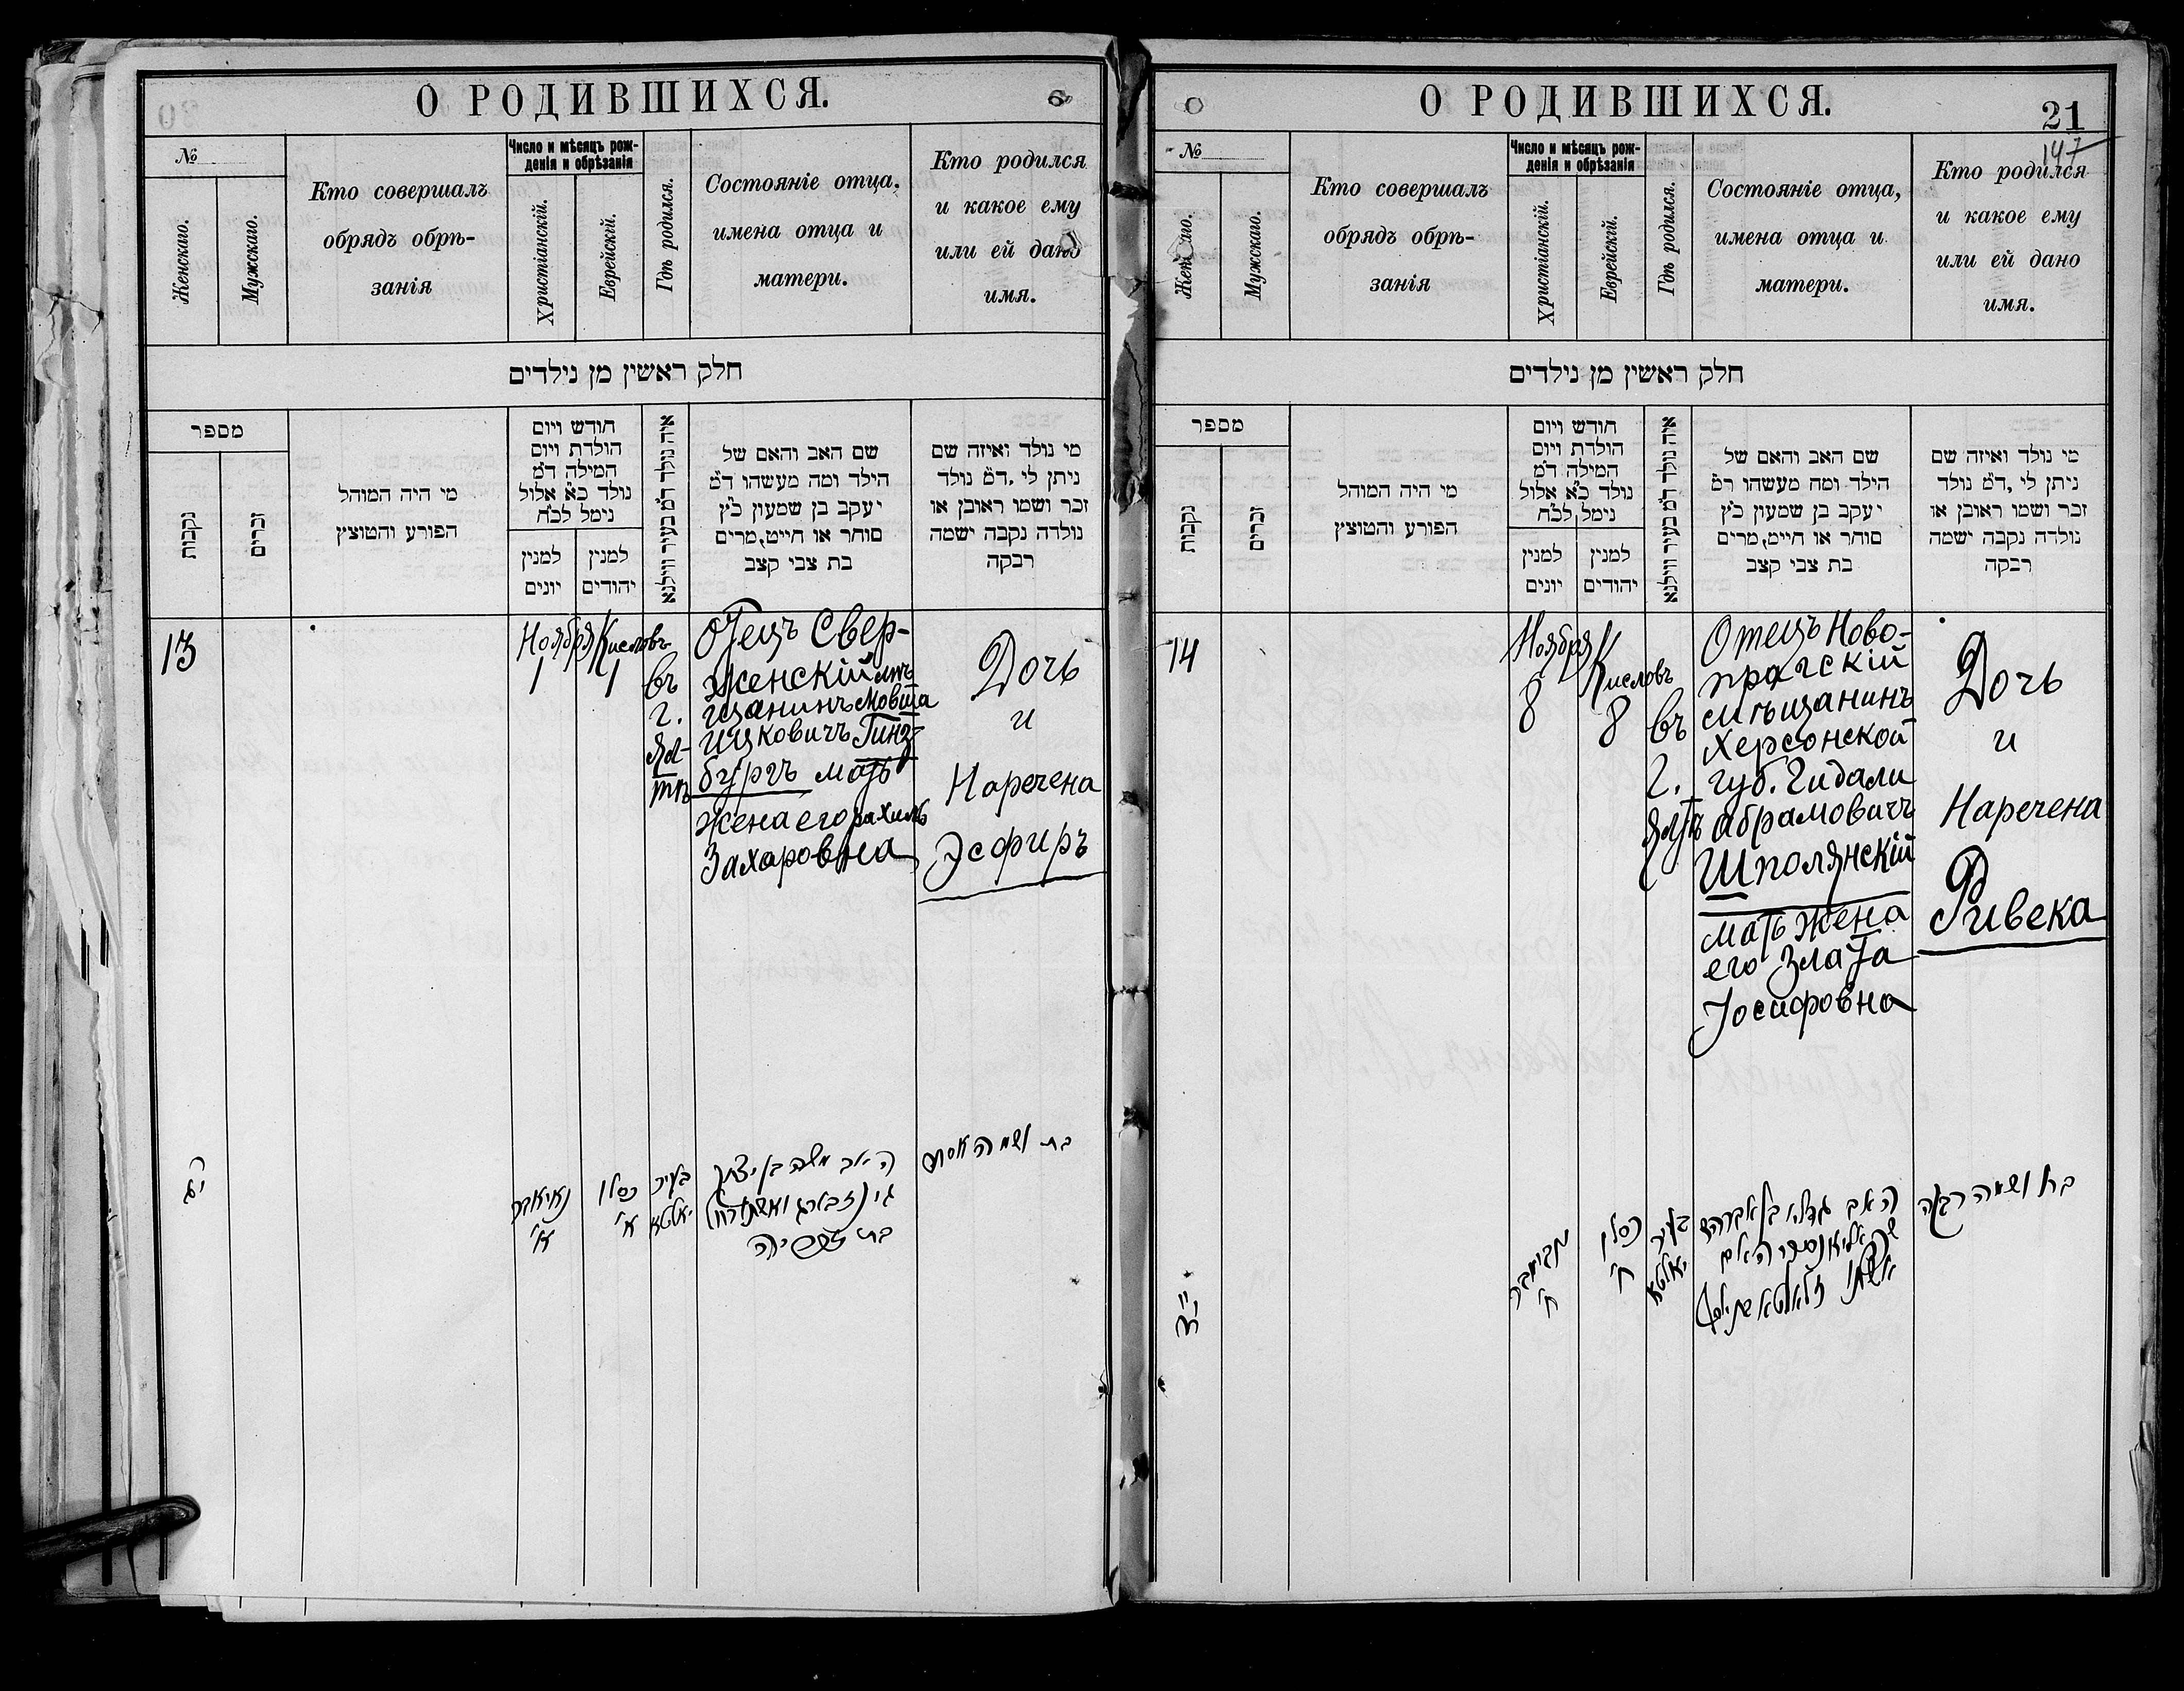 О РОДИВШИХСЯ.
№
Женскаго.
Мужскаго.
Кто совершалъ
обрядъ обрѣ-
занія
Число и мѣсяцъ рож-
денія и обрѣзанія
Христіанскій.
Еврейскій.
Гдѣ родился.
Состояніе отца,
имена отца и
матери.
Кто родился
и какое ему
или ей дано
имя.
חלק ראשין מן נילדים
מספר
נקבות
זכרים
מי היה המוהל
הפורע והטוצץ
חודש ויום
הולדת ויום
המילה ד"מ
נולד כ"א אלול
נימל לכ"ח
למנין
יונים
למנין
יהודים
איה נולד ד"מ בעיר ווילנא
שם האב והאם של
הילד ומה מעשהו ד"מ
יעקב בן שמעון כ"ץ
סוחר או חייט,מרים
בת צבי קצב
מי נולד ואיזה שם
ניתן לי ,ד"מ נולד
זכר ושמו ראובן או
נולדה נקבה ישמה
רבקה
13
Ноября
1
Кисловъ
1
въ
г.
Ял-
тѣ
Отецъ Свер-
женскій мѣ-
щанинъ Мовша
Ицковичъ Гинз-
бургъ мать
жена его Рахиль
Захаровна
Дочь
и
Наречена
Эсфирь
יג
נאיאבר
א'
כסלו
א'
בעיר
יאלטא
האב משה בן יצחק
גינזבורג ואשתו רחל
בת
בת ושמה אסתר
О РОДИВШИХСЯ.
21
147
№
Женскаго.
Мужскаго.
Кто совершалъ
обрядъ обрѣ-
занія
Число и мѣсяцъ рож-
денія и обрѣзанія
Христіанскій.
Еврейскій.
Гдѣ родился.
Состояніе отца,
имена отца и
матери.
Кто родился
и какое ему
или ей дано
имя.
חלק ראשין מן נילדים
מספר
נקבות
זכרים
מי היה המוהל
הפורע והטוצץ
חודש ויום
הולדת ויום
המילה ד"מ
נולד כ"א אלול
נימל לכ"ח
למנין
יונים
למנין
יהודים
איה נולד ד"מ בעיר ווילנא
שם האב והאם של
הילד ומה מעשהו ר"מ
יעקב בן שמעון כ"ץ
סוחר או חייט,מרים
בת צבי קצב
מי נולד ואיזה שם
ניתן לי ,ד"מ נולד
זכר ושמו ראובן או
נולדה נקבה ישמה
רבקה
14
Ноября
8
Кисловъ
8
въ
г.
Ялтѣ
Отецъ Ново-
прагскій
мѣщанинъ
Херсонской
губ. Гидали
Абрамовичъ
Шполянскій
мать жена
его Злата
Іосифовна
Дочь
и
Наречена
Ривека
י"ד
ח'
כסלו
ח'
בעיר
יאלטא
האב גדליו בן אברהם
האם
אשתו זלאטא
בת ושמה רבקה